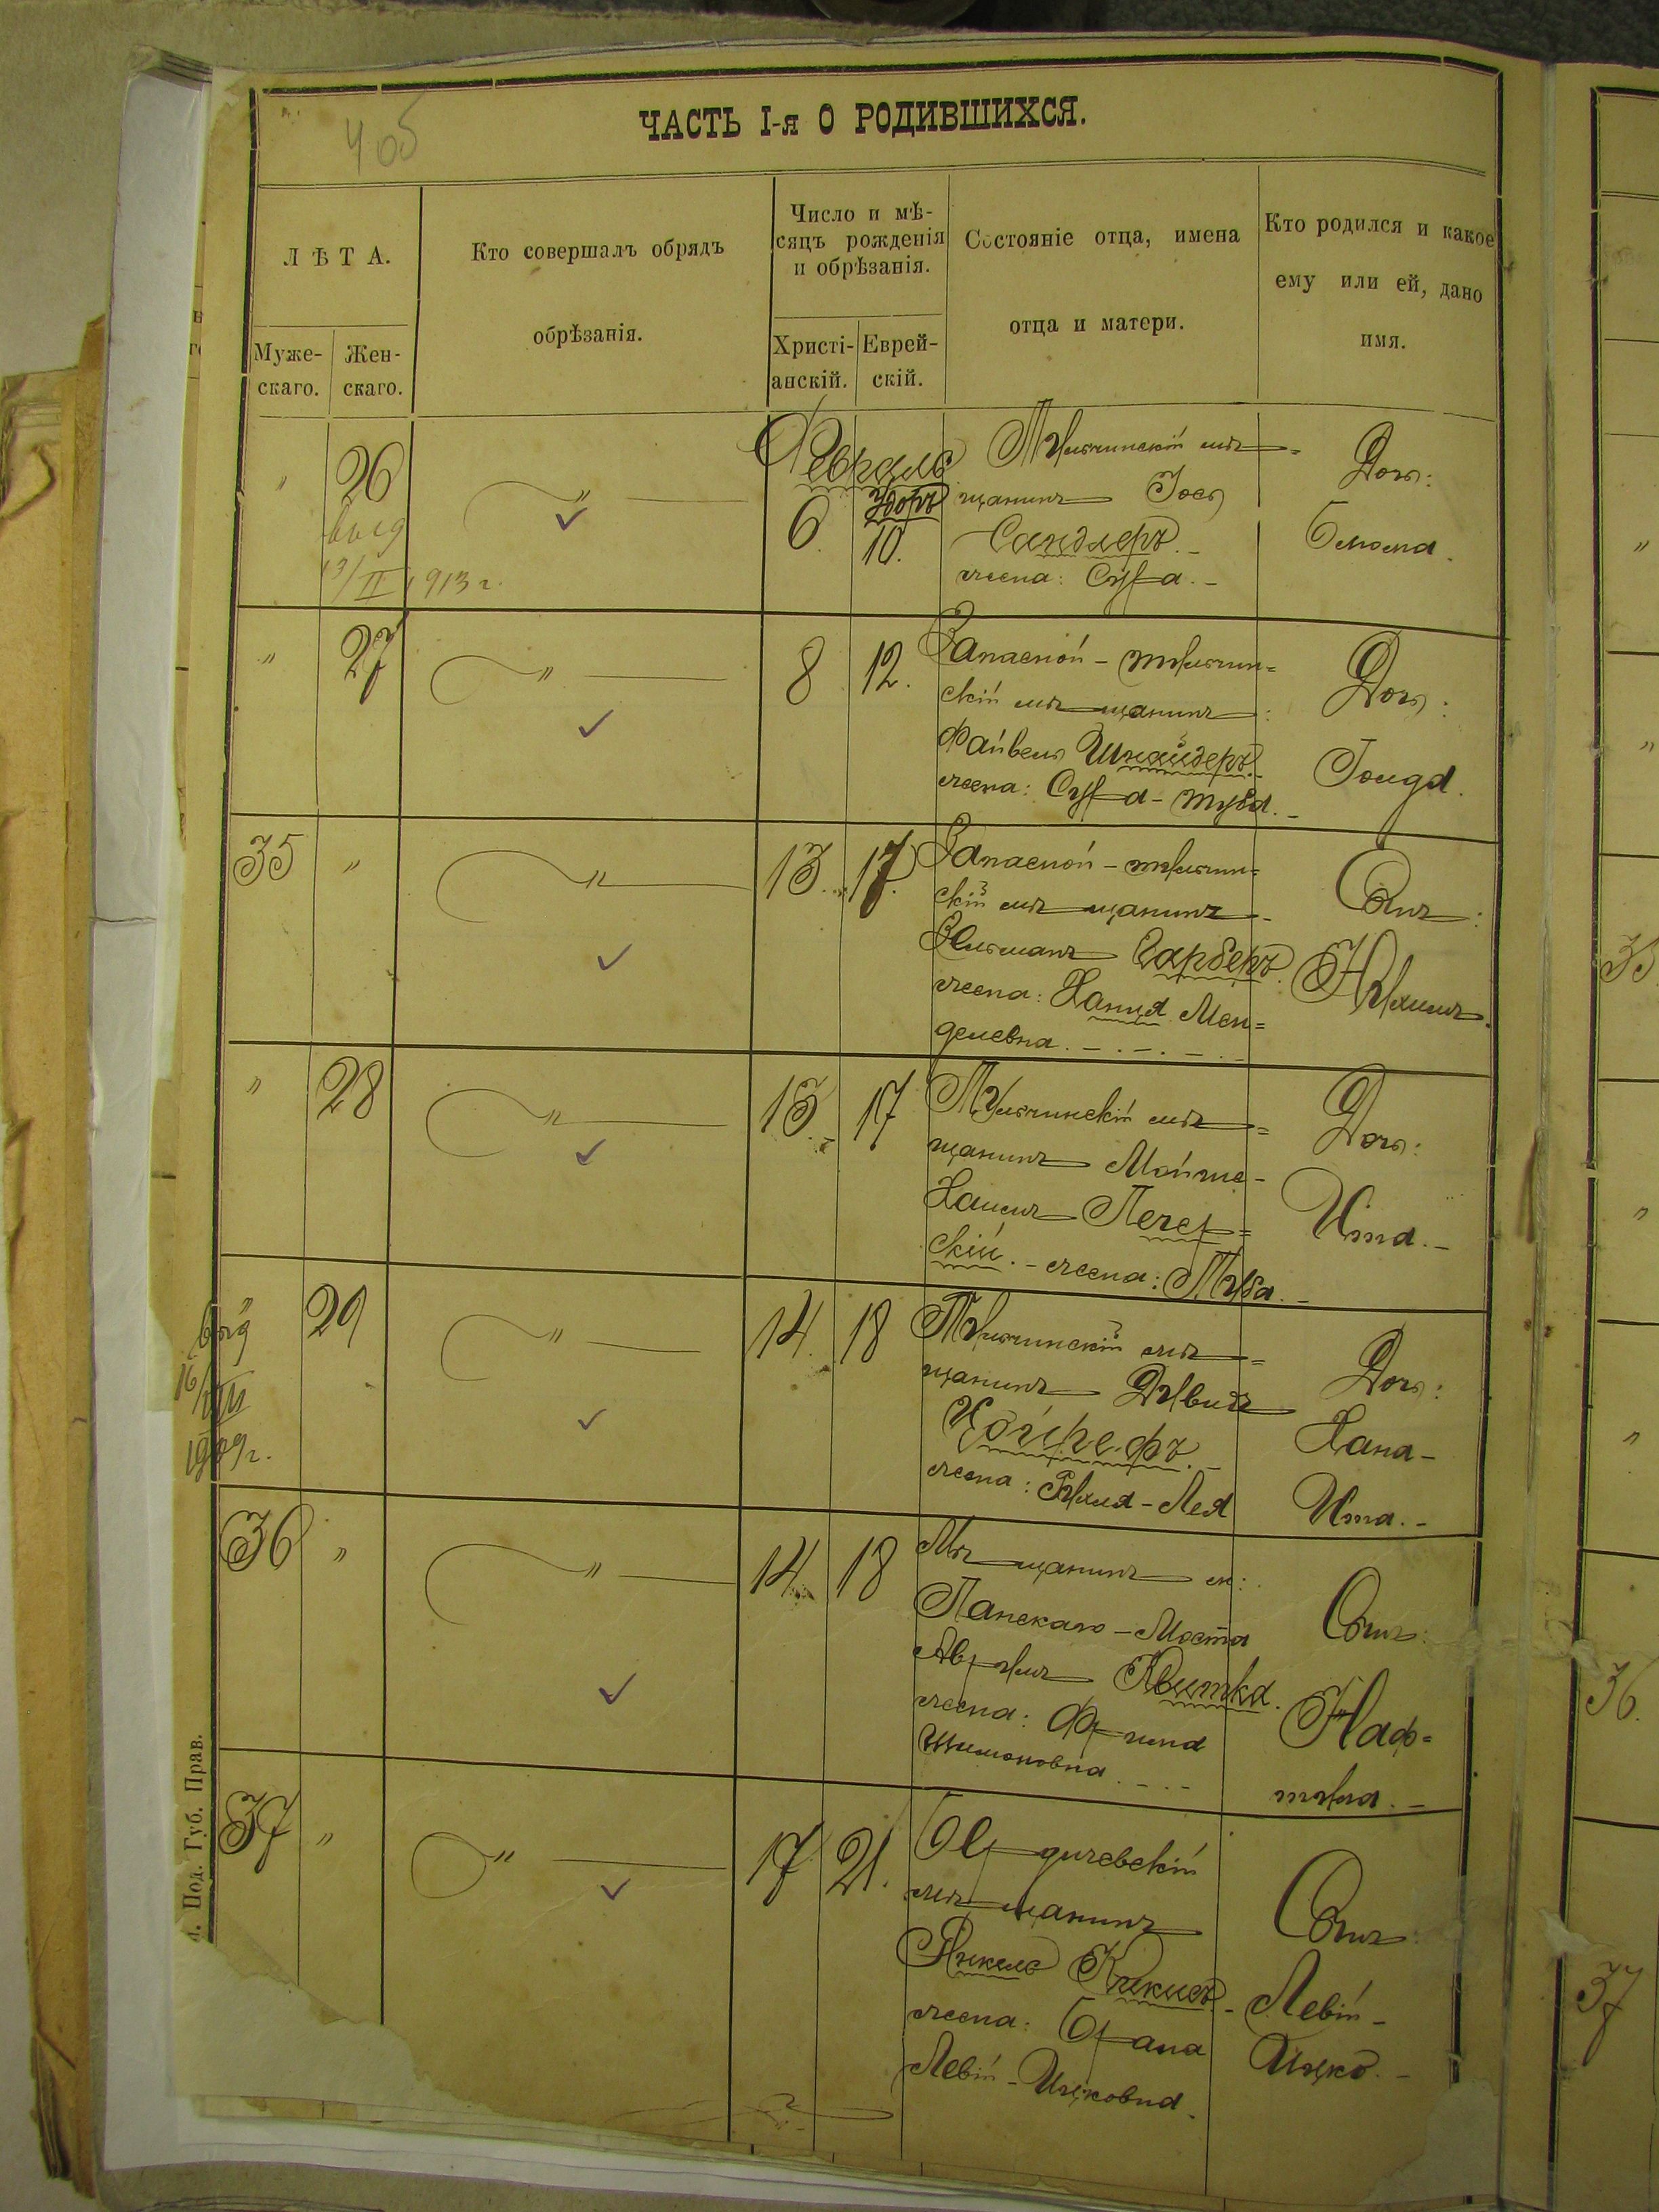 406
ЧАСТЬ I-я О РОДИВШИХСЯ.
ЛѢТА.
Муже-
скаго.
Жен-
скаго.
Кто совершалъ обрядъ
обрѣзанія.
Число и мѣ-
сяцъ рожденія
и обрѣзанія.
Христі-
анскій.
Еврей-
скій.
Состояніе отца, имена
отца и матери.
Кто родился и какое
ему или ей, дано
имя.
" 26
выд
13/II 1913 г.
"
Февраль
6. 10.
Тульчинскій мѣ=
щанинъ Іось
Сандлеръ.-
жена: Сура.-
Дочь:
Блюма.
" 27
"
8 12.
Запасной - тульчин=
скій мѣщанинъ:
Файвель Шнайдеръ.
жена: Сура-Туба.-
Дочь:
35 "
"
13. 17.
Запасной - тульчин=
скій мѣщанинъ-
Зельманъ Гарберъ.
жена: Ханця Мен=
делевна.
Сынъ:
Нухимъ.
" 28
"
13 17
Тульчинскій мѣ=
щанинъ Мойше-
Хаимъ Печер=
скій.- жена: Туба.-
Дочь:
Ита.-
" 29
выд
16/VIII
1909 г.
"
14. 18
Тульчинскій мѣ=
щанинъ Дувидъ
Цойреф.ъ.-
жена: Рухля-Лея
Дочь:
Хана-
Ита.-
36 "
"
14. 18
Мѣщанинъ м:
Панскаго-Моста
Аврумъ Квитка.
жена:
Шимоновна
Сынъ:
Наф=
тула.-
37 "
"
17 21.
Бердичевскій
мѣщанинъ
Янкель
жена: Брана
Левій-Ицковна.
Сынъ:
Левій-
Ицко.-
л. Под. Губ. Прав.
35
36.
37